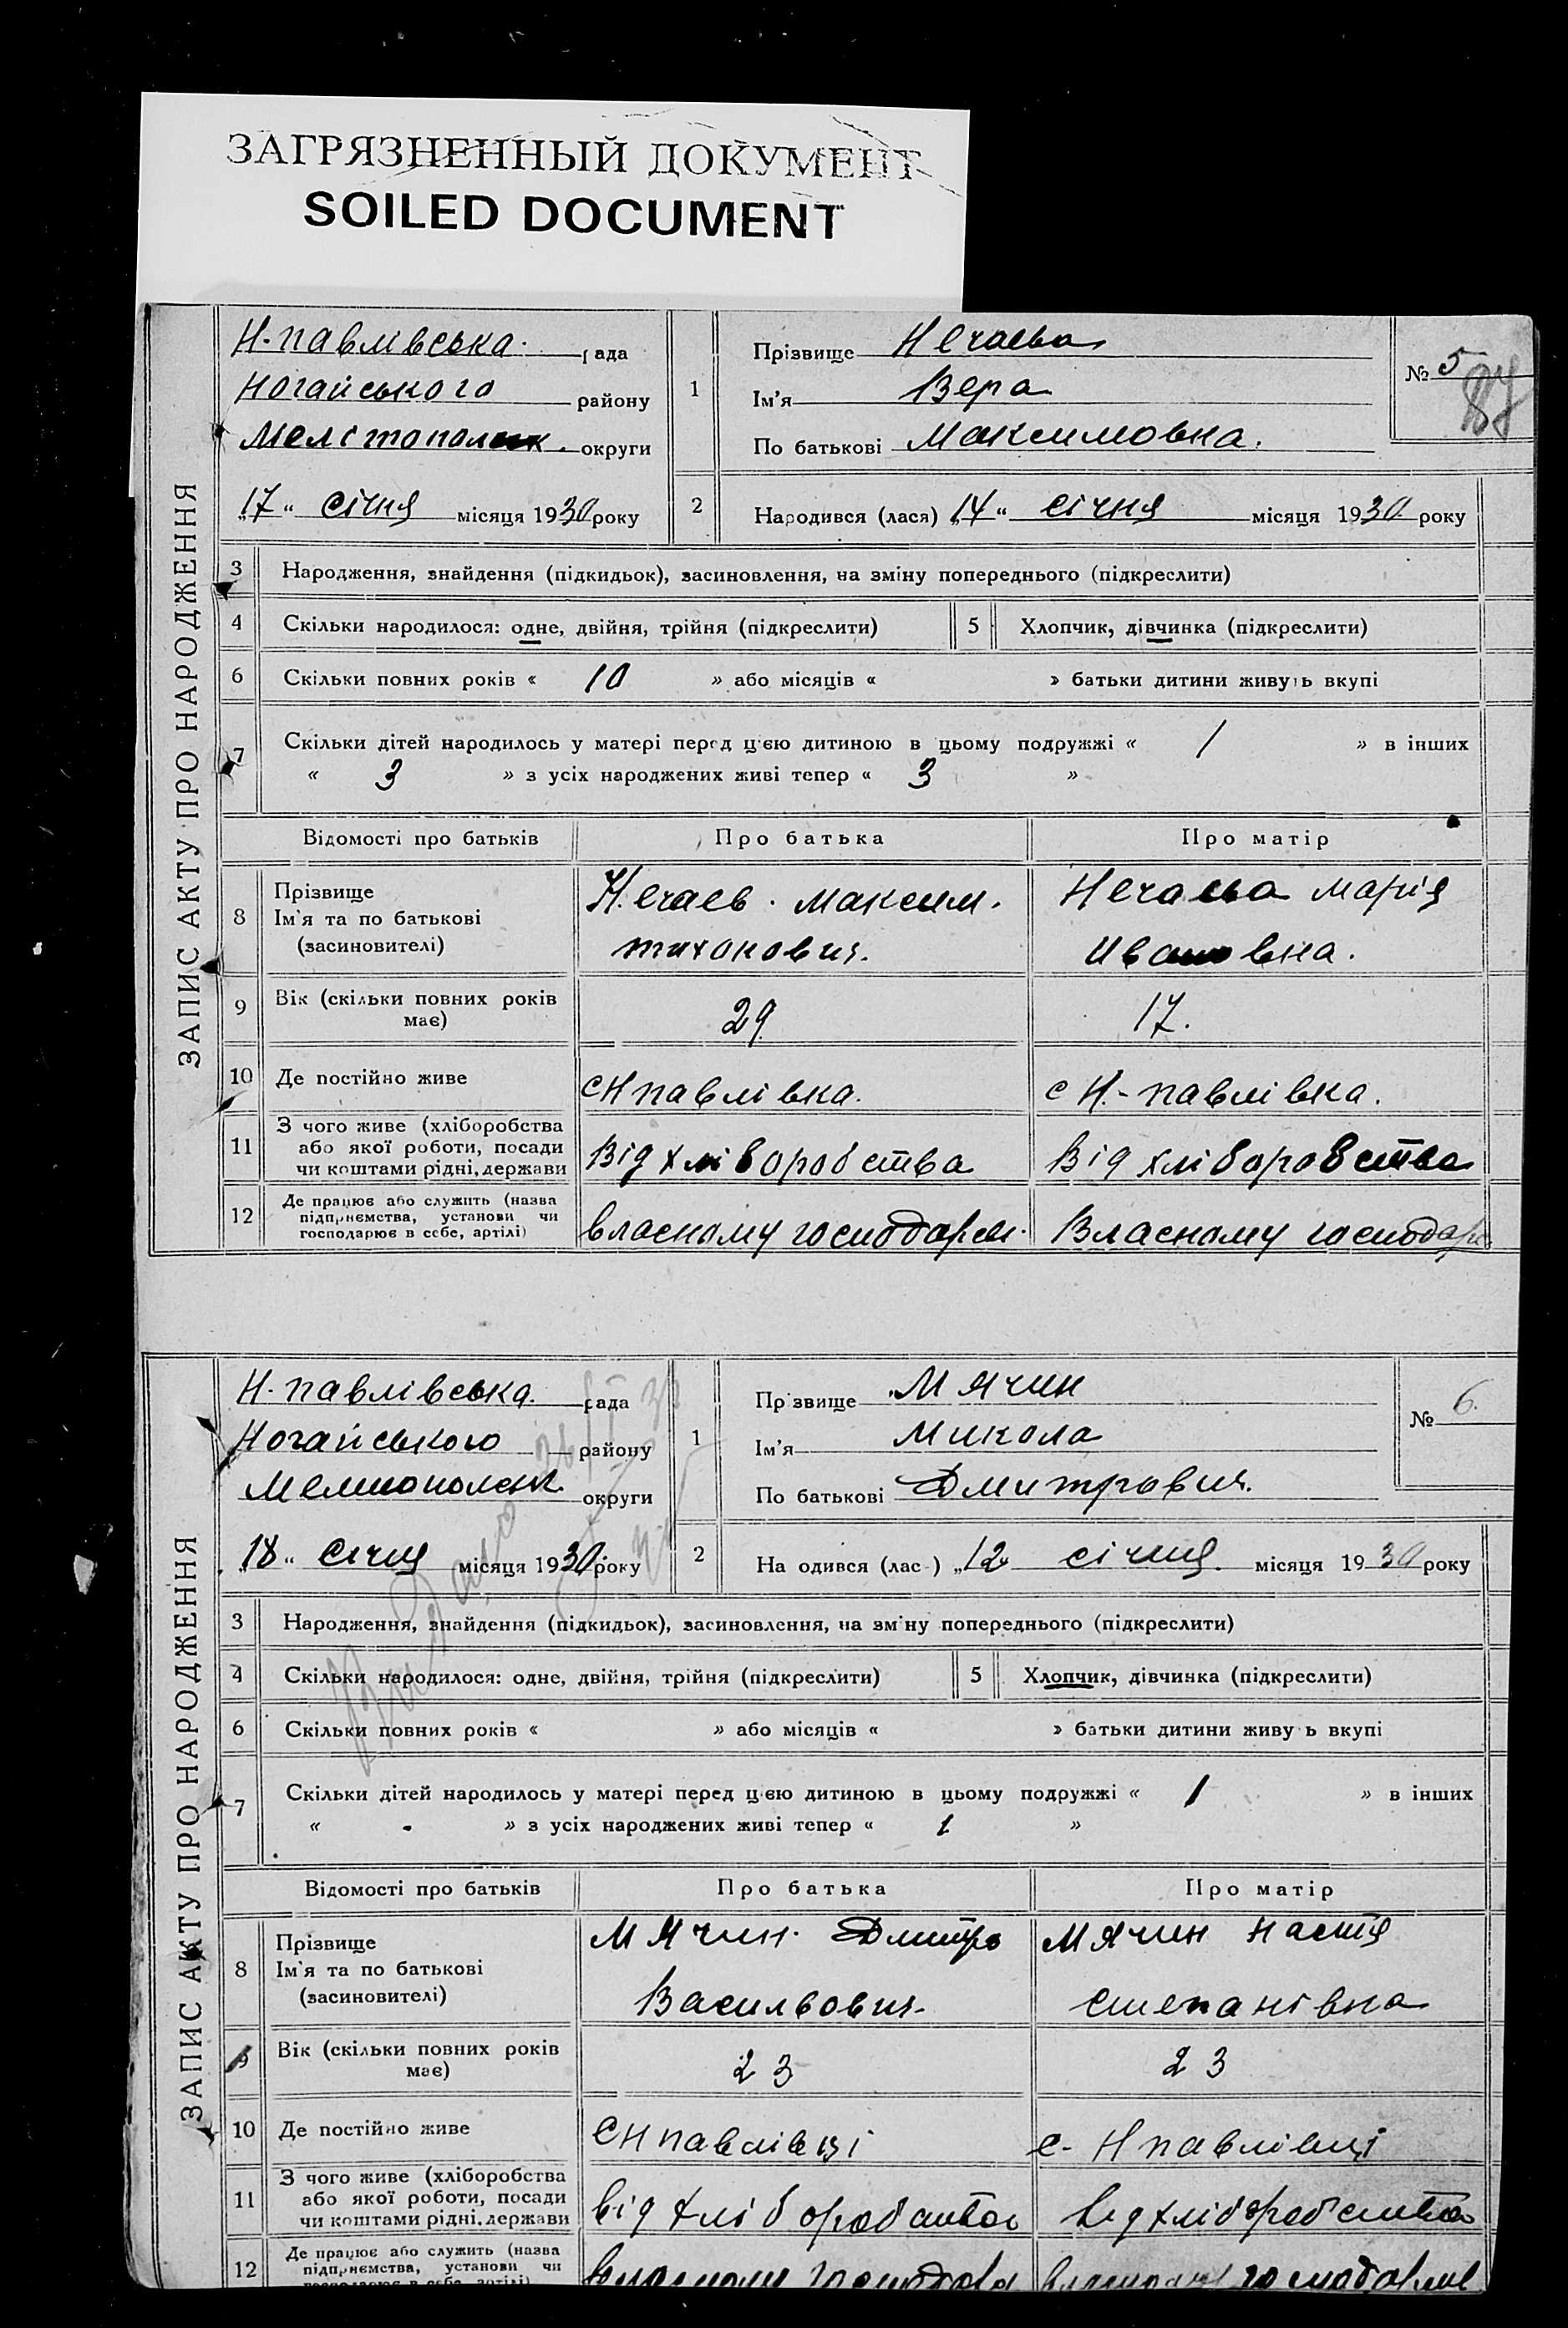 ЗАГРЯЗНЕННЫЙ ДОКУМЕНТ
SOILED DOCUMENT
ЗАПИС АКТУ ПРО НАРОДЖЕННЯ
Н-павлівська. рада
Ногайського району
округи
„17“ січня місяця 1930 року
1
Прізвище Нечаева
Ім'я Вера
По батькові Максимовна.
№ 5
2
Народився (лася) „14“ січня місяця 1930 року
3 Народження, знайдення (підкидьок), засиновлення, на зміну попереднього (підкреслити)
4 Скільки народилося: одне, двійня, трійня (підкреслити) 5 Хлопчик, дівчинка (підкреслити)
6 Скільки повних років « 10 » або місяців « » батьки дитини живуть вкупі
7 Скільки дітей народилось у матері перед цією дитиною в цьому подружжі « 1 » в інших
« 3 » з усіх народжених живі тепер « 3 »
Відомості про батьків Про батька Про матір
8 Прізвище Ім'я та по батькові (засиновителі)
Нечаев. Максим. Нечаева Марія
тихонович. Ивановна.
9 Вік (скільки повних років має) 29 17.
10 Де постійно живе с Н павлівка. с Н.-павлівка.
11 З чого живе (хліборобства або якої роботи, посади чи коштами рідні, держави
Від хліборобства Від хліборобства
12 Де працює або служить (назва підприємства, установи чи господарює в себе, артілі)
власному господар Власному господар
ЗАПИС АКТУ ПРО НАРОДЖЕННЯ
Н-павлівська. рада
Ногайського району
округи
„18“ січня місяця 1930 року
1
Пр звище Мячин
Ім'я Микола
По батькові Дмитрович.
№ 6.
2
На одився (лас-) „12 січня місяця 1930 року
3 Народження, знайдення (підкидьок), засиновлення, на зм ну попереднього (підкреслити)
4 Скільки народилося: одне, двійня, трійня (підкреслити) 5 Хлопчик, дівчинка (підкреслити)
6 Скільки повних років « » або місяців « » батьки дитини живу ь вкупі
7 Скільки дітей народилось у матері перед цією дитиною в цьому подружжі « 1 » в інших
« - » з усіх народжених живі тепер « 1 »
Відомості про батьків Про батька Про матір
8 Прізвище Ім'я та по батькові (засиновителі)
Мячин. Дмитро Мячин Настя
Васильович. Степанівна
9 Вік (скільки повних років має) 23 23
10 Де постійно живе с Н павлівці с- Н павлівці
11 З чого живе (хліборобства або якої роботи, посади чи коштами рідні, держави
від хліборобства від хліборобства
12 Де працює або служить (назва підприємства, установи чи